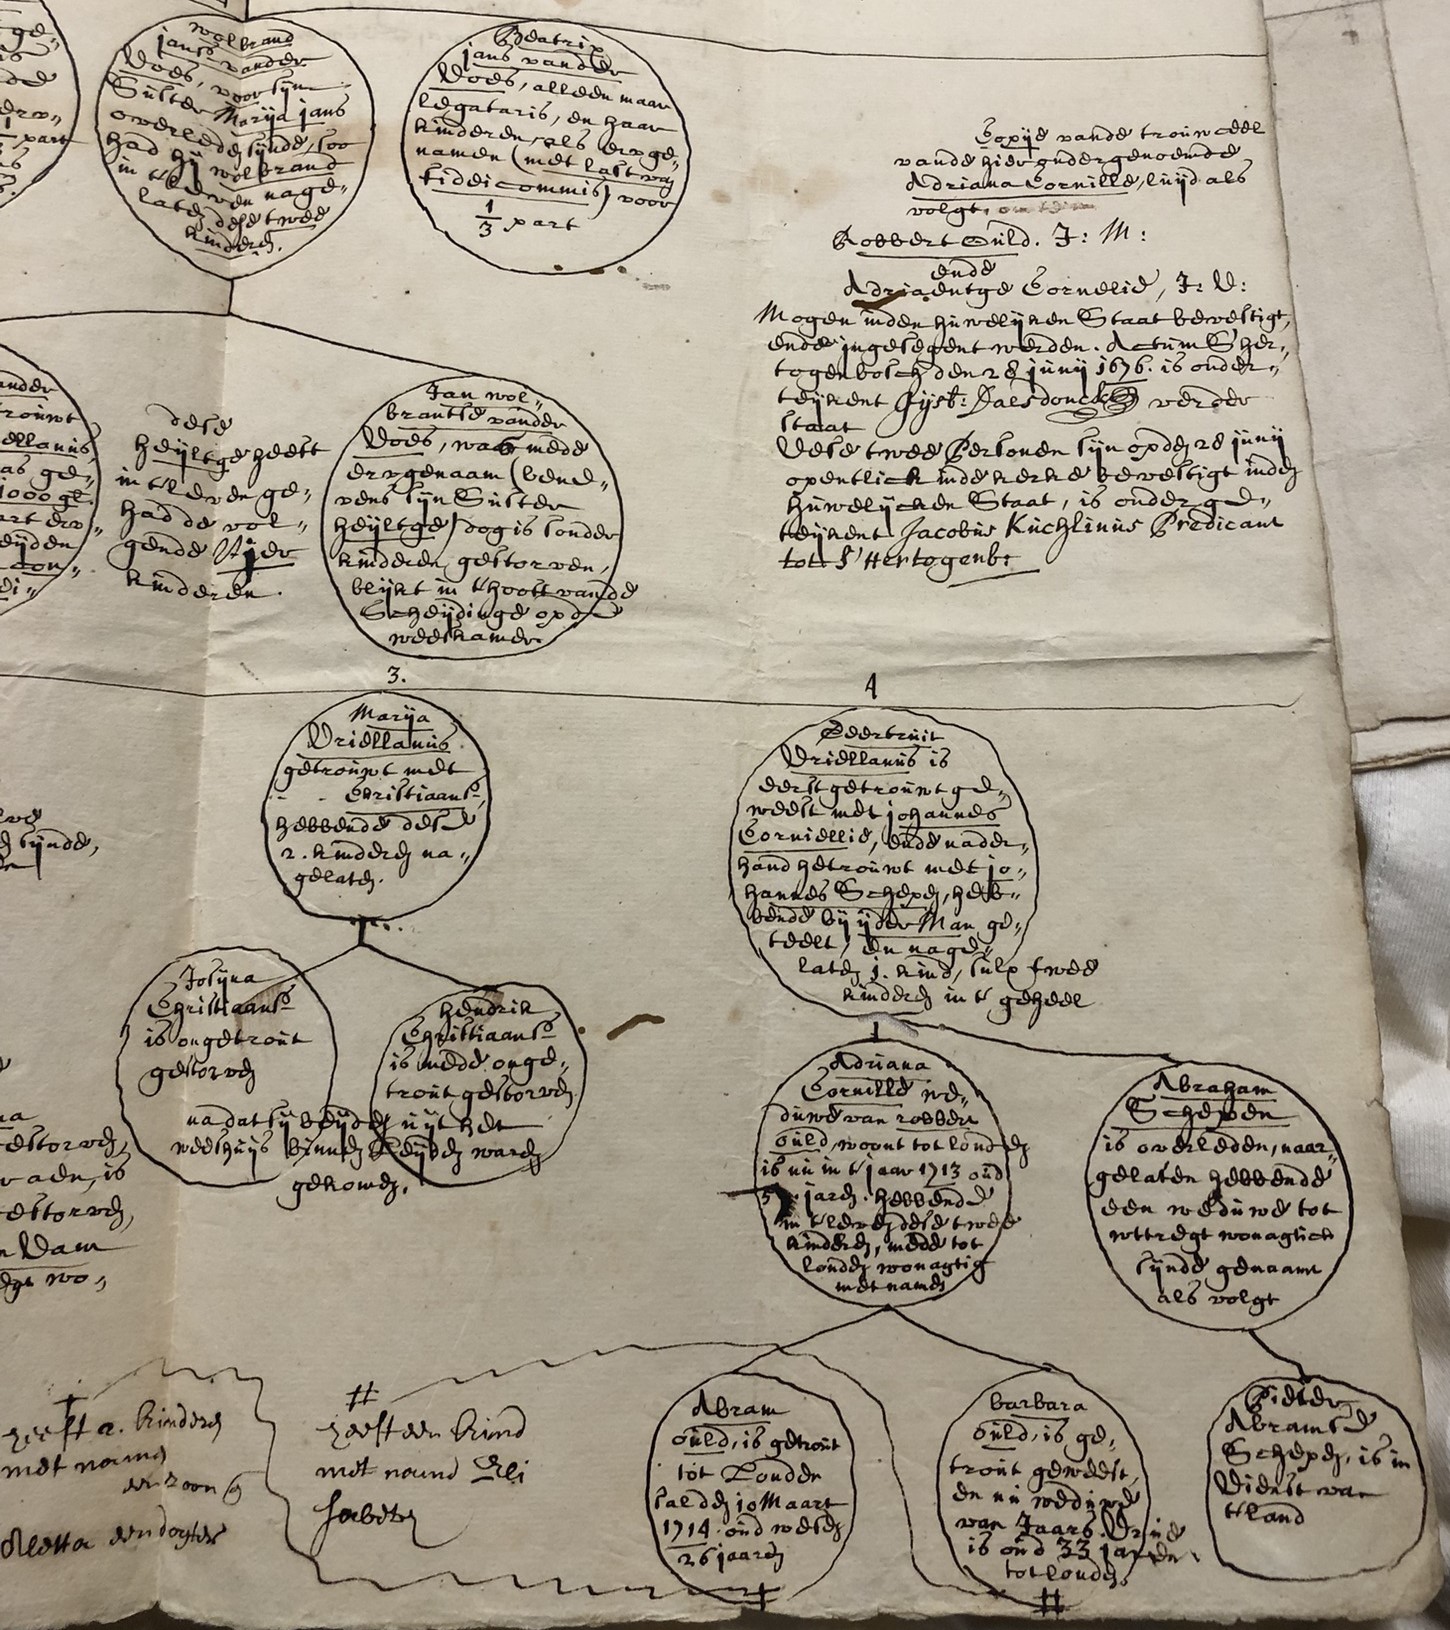 wolbrand
jans vander
Does, voor syne
Suster Marija jans
overleden synde, soo
had hy wolbrand
in 't leven nage-
laten dese twee
kinderen.
Beatrix
jans vander
Does, alleen maar
legataris, en haar
kinderen als erfge-
namen (met last van
fideicommis) voor
1/3 part
Copije vande trouwceel
vande hier onder genoemde
Adriana Cornille, luijd als
volgt,
Robbert Ould. J: M:
ende
Adriaentge Cornelie, J: D:
Mogen inden huwelijken Staat bevestigt,
ende ingesegent werden. Actum S'her-
togenbosch den 28 junij 1676. is onder-
teijkent Gijsb: Jalsdonck verder
staat
Dese twee Personen syn op den 28 junij
opentlick inde kerke bevestigt inden
Huwelijcken Staat, is onderge-
teijkent Jacobus Kuchlinus Predicant
tot S'Hertogenb:
ander
trouwt
ellanus
as ge-
1000 gl.
eijden
con-
dese
Heijltge heeft
in 't leven ge-
had de vol-
gende Vijer
kinderen.
Jan wol-
brantse vander
Does, was mede
erfgenaam (bene-
vens syn Suster
Heyltge) dog is sonder
kinderen gestorven,
blijkt in 't hooft vande
Scheijdinge op de
weeskamer
3.
Marija
Driellanus
getrouwt met
- - Christiaans,
hebbende dese
2. kinderen na-
gelaten.
4
Geertruit
Driellanus is
eerst getrouwt ge-
weest met johannes
Corniellie, ende nader-
hand getrouwt met jo-
hannes Schepen, heb-
bende bij ijder Man ge-
teelt, en nage-
laten 1. kind, sulx twee
kinderen in 't geheel
synde,
Josyna
Christiaans
is ongetrout
gestorven
Hendrik
Christiaans
is mede onge-
trout gestorven
na dat sy beyden uijt het
weeshuijs binnen Leyden waren
gekomen.
estorven,
aen, is
estorven,
n Dam
egt wo-
Adriana
Cornille we-
duwe van robbert
ould woont tot londen
is nu in 't jaar 1713 oud
5 jaren. hebbende
in 't leven dese twee
kinderen, mede tot
londen wonagtig
met namen
Abraham
Schepen
is overleden, naar-
gelaten hebbende
een weduwe tot
uttregt wonagtich
synde genaamt
als volgt
heeft 2. kinderen
met naame
een zoon
Oletta een dogter
#
heeft een kind
met naame Eli
sabeth
Abram
ould, is getrout
tot Londen
sal den 10 Maart
1714. oud wesen
26 jaaren
barbara
ould, is ge-
trout geweest,
en nu weduwe
van Jaars
is oud 33 jaren
tot londen.
#
Pieter
Abramse
Schepen, is in
Dienst van
't land